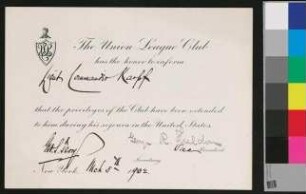 The Union League Club
has the honor to inform
Lieut Commander Karpf
that the privileges of the Club have been extended
to him during his sojourn in the United States
George R.
President
Secretary
New York March 5th 1902